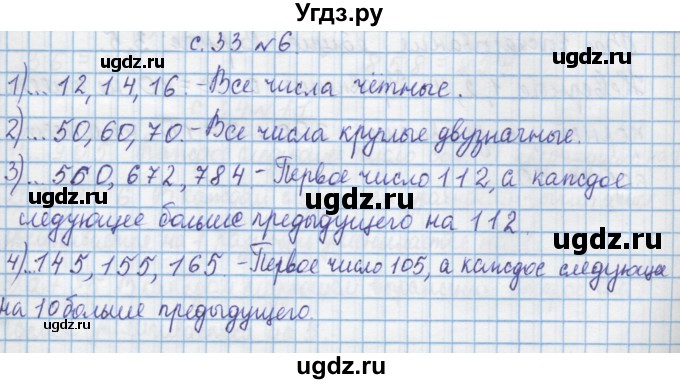 Угдз.ру
с. 33 №6.
1)... 12, 14, 16. - Все числа чётные.
2)... 50, 60, 70 - Все числа круглые двузначные.
3)... 560, 672, 784 - Первое число 112, а каждое
следующее больше предыдущего на 112.
4)... 145, 155, 165. - Первое число 105, а каждое следующе
на 10 больше предыдущего.
ugdz.ru
ugdz.ru
ugdz.ru
ugdz.ru
ugdz.ru
ugdz.ru
ugdz.ru
ugdz.ru
ugdz.ru